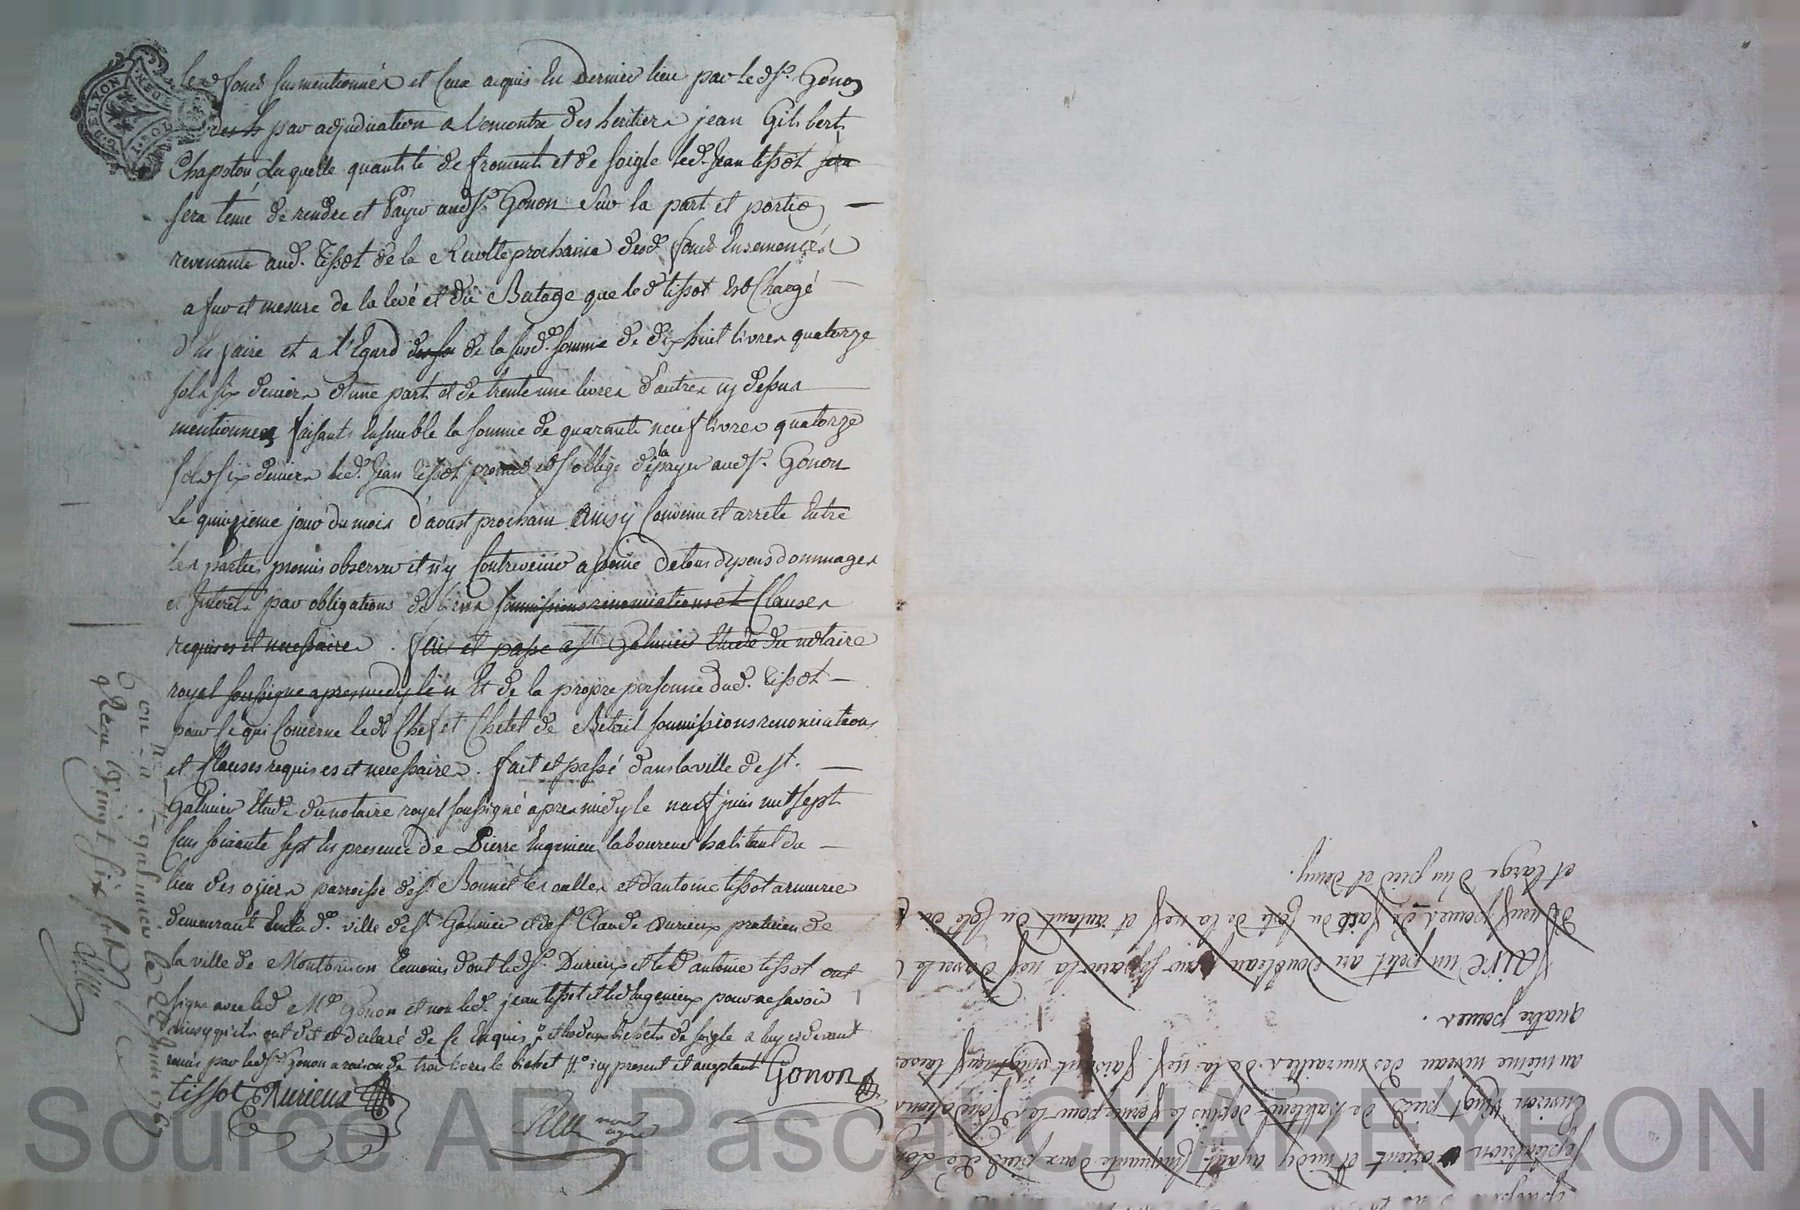 lesd. fonds susmentionnés et ceux acquis en dernier lieu par led. sr. Gonon
des h par adjudication a l'encontre des heritiers jean Gilibert
Chapston laquelle quantité de froment et de soigle led. Jean tissot sera
sera tenu de rendre et Payer audsr. Gonon sur la part et portion
revenante aud. tissot de la Recolte prochaine desd. fonds Ensemencés
a fur et mesure de la levé et du Batage que led tissot Est Chargé
d'en faire et a l'Egard des so de la susd. somme de dix huit livres quatorze
sols six deniers d'une part et de trente une livres d'autres cy dessus
mentionnés faisants Ensemble la somme de quarante neuf livres quatorze
sols six deniers led. Jean tissot promet et s'oblige de la payer audsr. Gonon
Le quinzieme jour du mois d'aoust prochain Ainsy Convenu et arreté Entre
les parties promis observer et n'y Contrevenir a peine de tous depens dommages
et Interets par obligations de biens soumissions renonciations et Clauses
requises et necessaires. fait et passé a St Galmier Etude du notaire
royal soussigné apres midy le n Et de la propre personne dud. tissot
pour ce qui Concerne led Chef et Chetel de Betail soumissions renonciations
et Clauses requises et necessaires. fait et passé dans la ville de st.
Galmier Etude du notaire royal soussigné apres midy le neuf juin mil sept
Cens soixante sept En presence de Pierre Ingenieu laboureur habitant du
lieu des oziers parroisse de st Bonnet les oulles et d'antoine tissot armurier
demeurant En lad. ville de st Galmier et de sr Claude Durieux praticien de
la ville de Montbrison temoins dont led sr. Durieux et led antoine tissot ont
signé avec led Me Gonon et non led. jean tissot et led Ingenieux pour ne savoir
ainsy qu'ils ont dit et declaré de Ce Enquis et les deux bichets de soigle a luy cy devant
remis par led sr. Gonon a raison de trois livres le bichet icy present et acceptant
Gonon
tissot Durieux
Con. a st. galmier le 22 juin 1767
Reçu vingt six sols
et large d'un pied et demy.
de neuf pouces de face du coté de la nef et autant du coté du
faire un petit ar doubleau pour separer la nef d'avec le
quatre pouces.
au même niveau des murailles de la nef. faisant vingt neuf toises
Environ vingt pieds de hauteur depuis le ferme pour les fondations
septentrion orient et midy ayant cinquante deux pieds de lon
GEN. DE LYON
Source AD Pascal CHAREYRON